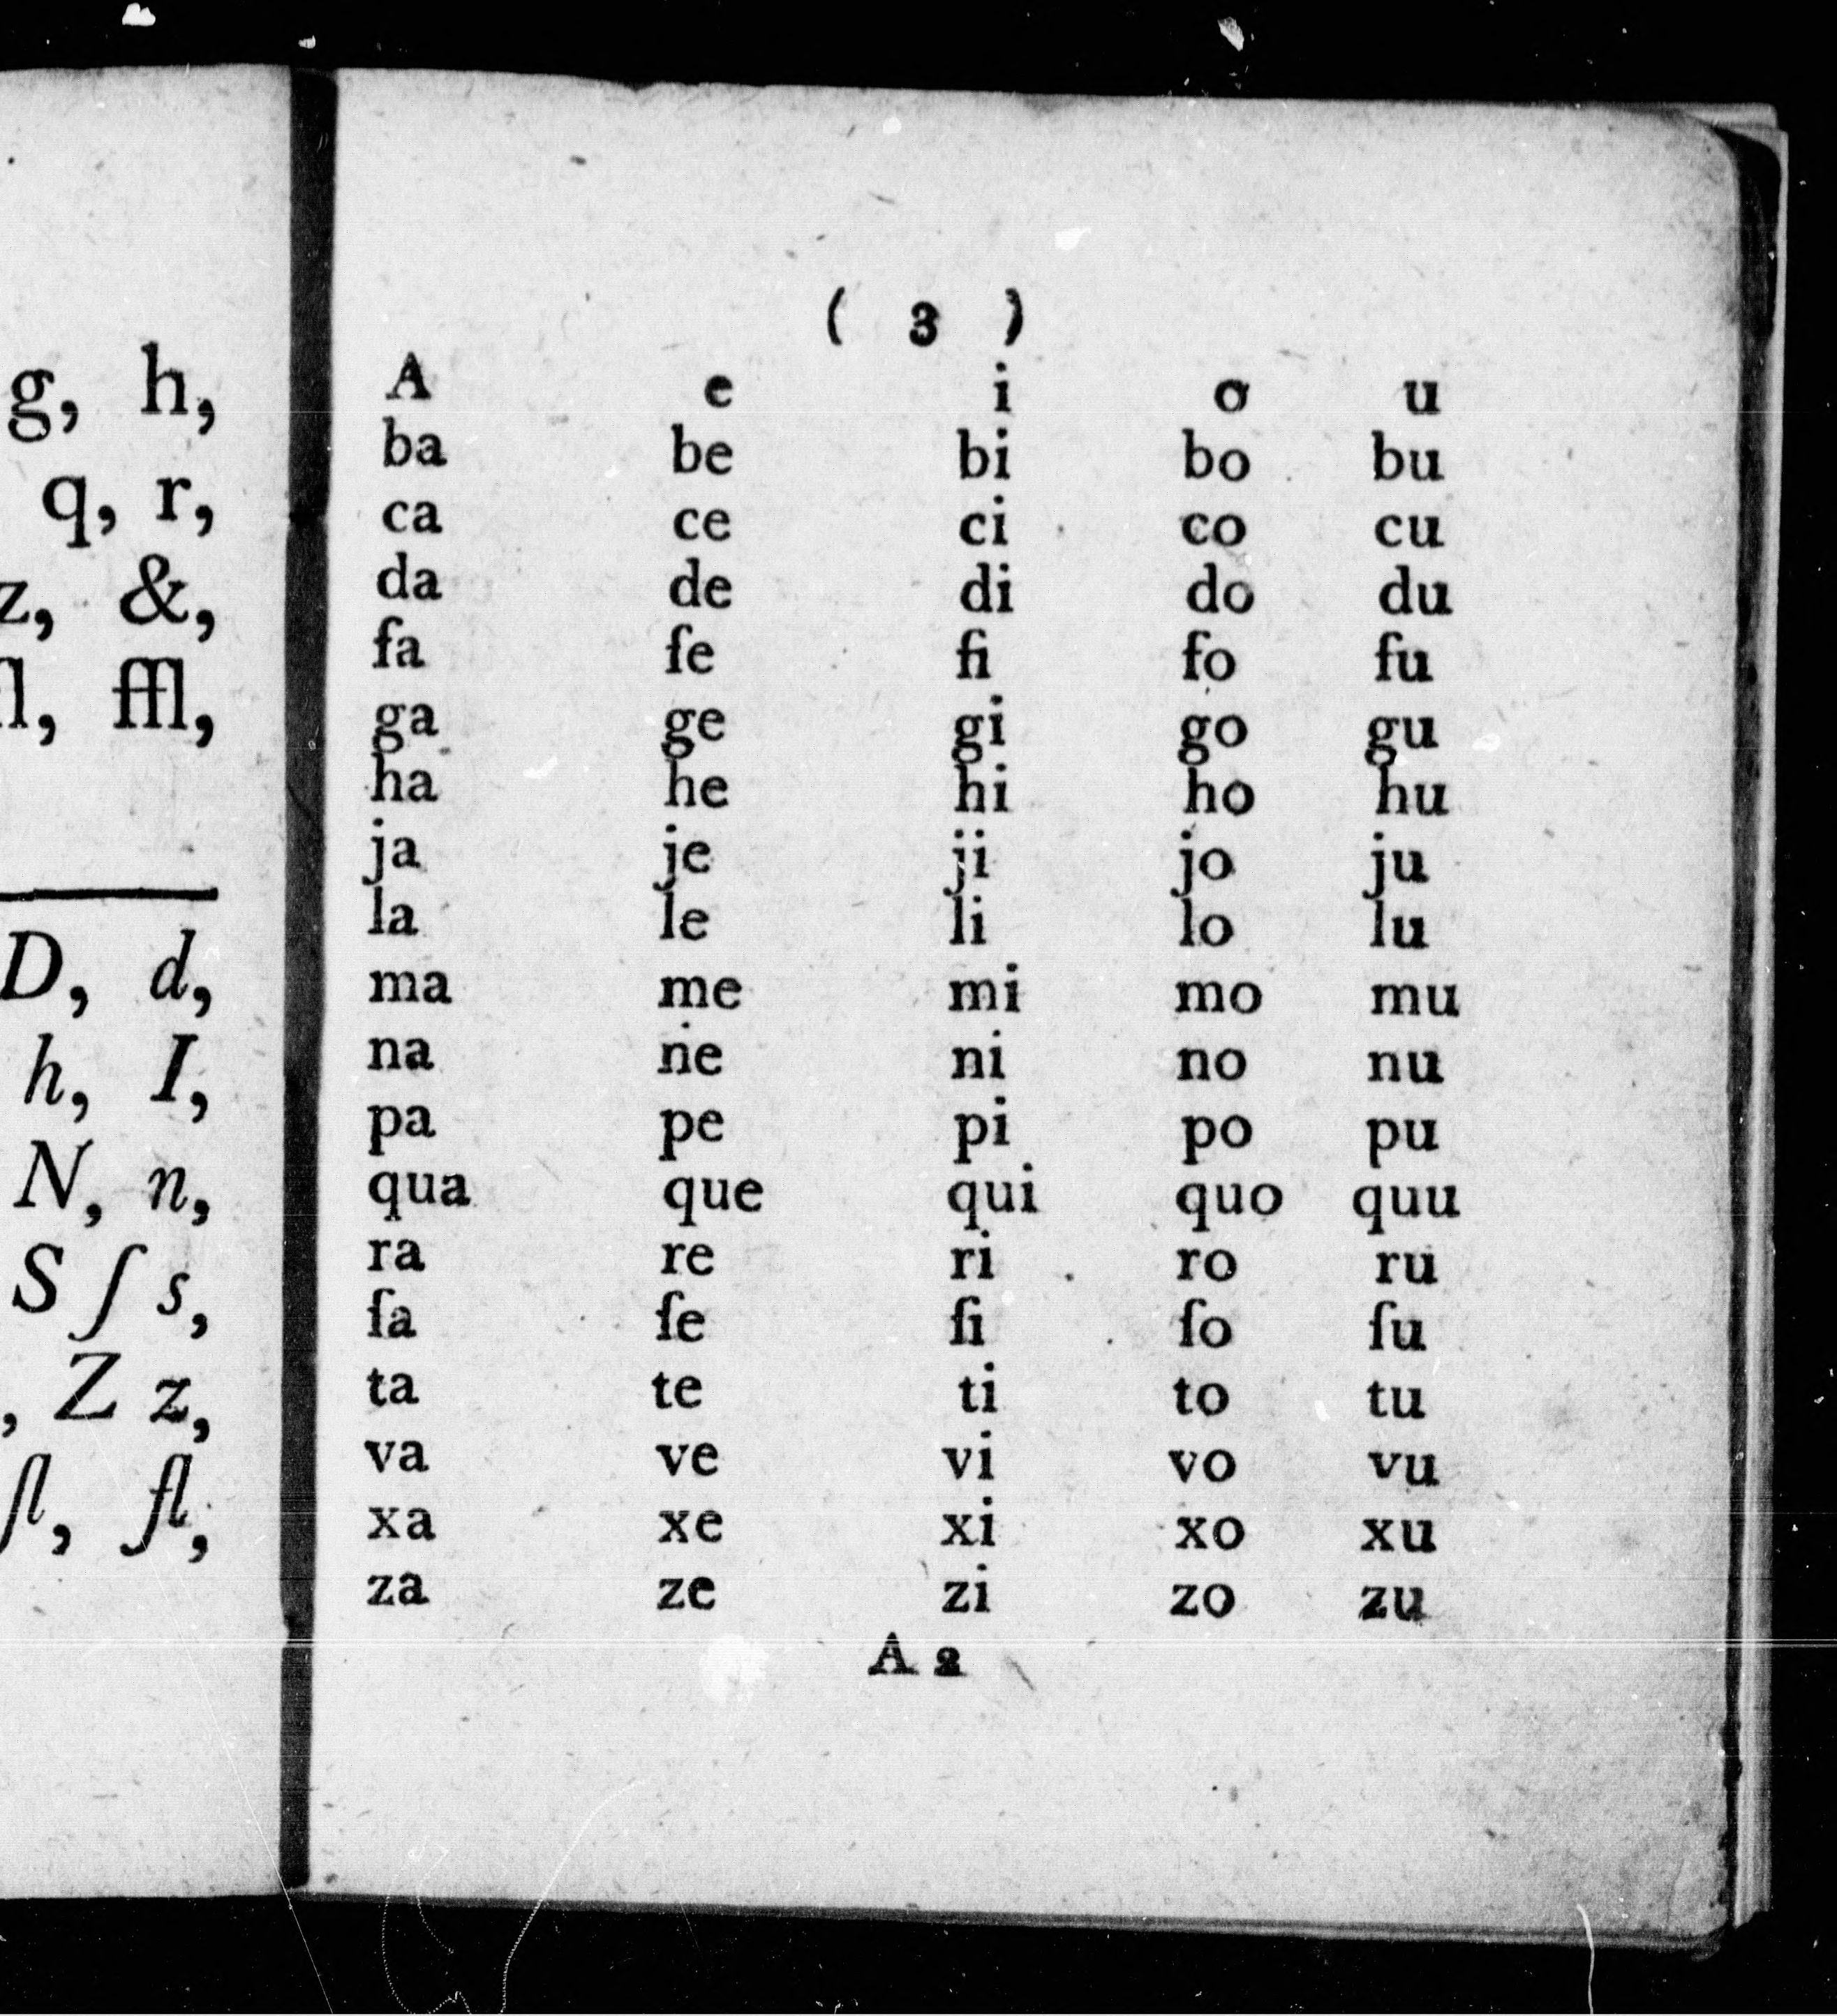 g, h,
q, r,
z, &,
ffl,
D, d,
h, I,
N, n,
S ſ s,
, Z z,
ſl, fl,
( 3 )
A e i o u
ba be bi bo bu
ca ce ci co cu
da de di do du
fa fe fi fo fu
ga ge gi go gu
ha he hi ho hu
ja je ji jo ju
la le li lo lu
ma me mi mo mu
na ne ni no nu
pa pe pi po pu
qua que qui quo quu
ra re ri ro ru
ſa ſe ſi ſo ſu
ta te ti to tu
va ve vi vo vu
xa xe xi xo xu
za ze zi zo zu
A 2